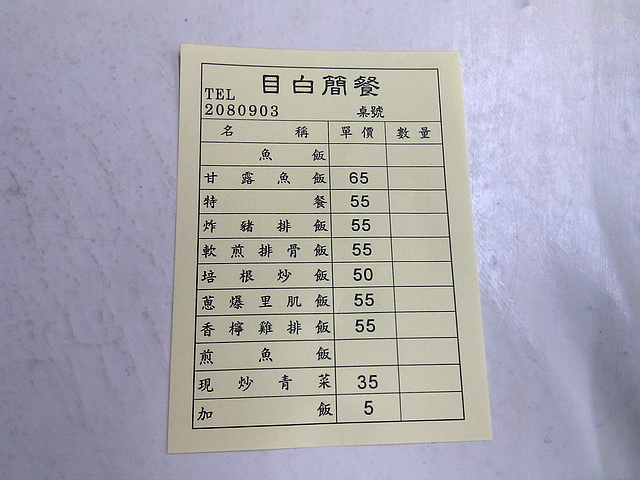 目白簡餐
TEL
2080903 桌號
名稱 單價 數量
魚飯
甘露魚飯 65
特餐 55
炸豬排飯 55
軟煎排骨飯 55
培根炒飯 50
蔥爆里肌飯 55
香檸雞排飯 55
煎魚飯
現炒青菜 35
加飯 5